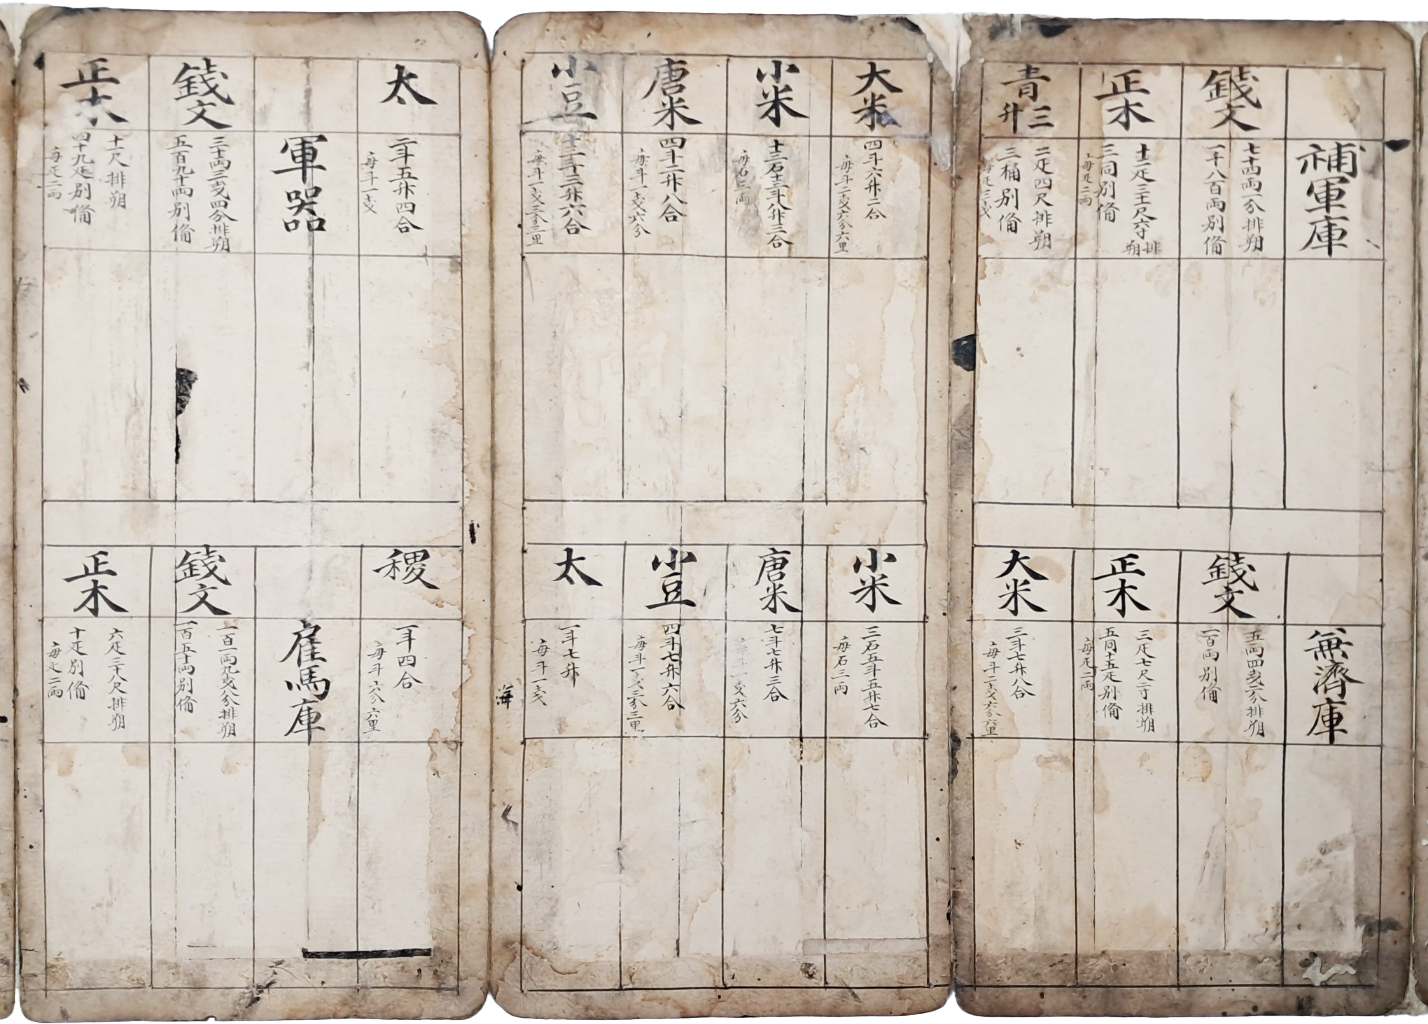 補軍庫
錢文
七十四両一分排朔
一千八百両別備
正木
十二疋三十三尺六寸排朔
三同別備
每疋二両
青三升
二疋四尺排朔
三桶別備
無濟庫
錢文
五両四戔六分排朔
一百両別備
正木
三疋七尺二寸排朔
五同十五疋別備
每疋二両
大米
三斗七升八合
每斗二戔六分六里
大米
四斗六升二合
每斗二戔六分六里
小米
十二石十三斗八升三合
每石三両
唐米
四斗二升八合
每斗一戔六分
小豆
每斗一戔三分三里
小米
三石五斗五升七合
每石三両
唐米
七斗七升三合
每斗一戔六分
小豆
四斗七升六合
每斗一戔三分三里
太
一斗七升
每斗一戔
海
太
二斗五升四合
每斗一戔
軍器
錢文
三十両三戔四分排朔
五百九十両別備
正木
十一尺排朔
四十九疋別備
每疋二両
稷
一斗四合
每斗六分六里
雇馬庫
錢文
一百一両九戔八分排朔
一百五十両別備
正木
六疋三十八尺排朔
十疋別備
每疋二両